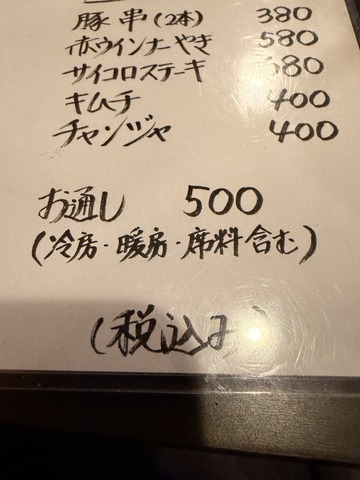 豚串(2本) 380
赤ウインナーやき 580
サイコロステーキ 680
キムチ 400
チャンジャ 400
お通し 500
(冷房・暖房・席料含む)
(税込み)